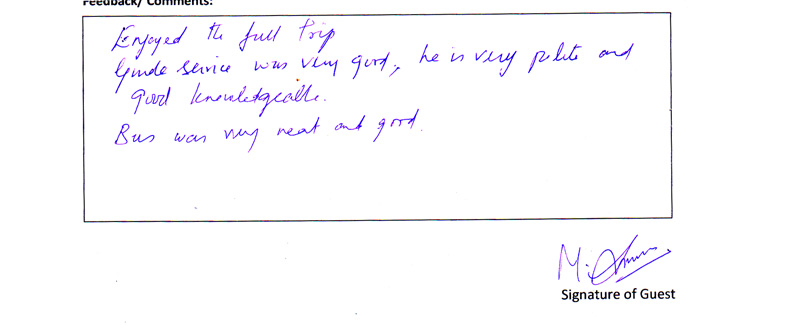 Feedback/ Comments:
Enjoyed the full trip
Guide service was very good, he is very polite and
good knowledgealle.
Bus was very neat and good.
M.
Signature of Guest